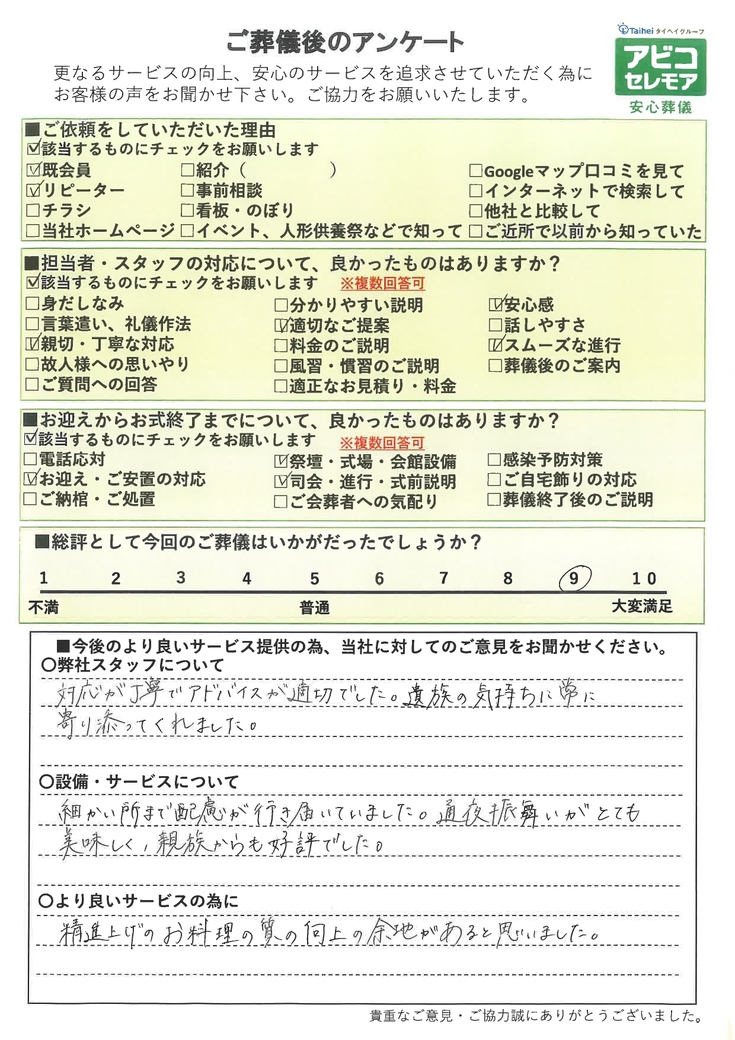 ご葬儀後のアンケート
Taihei タイヘイグループ
アビコ
セレモア
安心葬儀
更なるサービスの向上、安心のサービスを追求させていただく為に
お客様の声をお聞かせ下さい。ご協力をお願いいたします。
■ご依頼をしていただいた理由
☑該当するものにチェックをお願いします
☑既会員 □紹介（　　　　　） □Googleマップ口コミを見て
☑リピーター □事前相談 □インターネットで検索して
□チラシ □看板・のぼり □他社と比較して
□当社ホームページ □イベント、人形供養祭などで知って □ご近所で以前から知っていた
■担当者・スタッフの対応について、良かったものはありますか？
☑該当するものにチェックをお願いします ※複数回答可
□身だしなみ □分かりやすい説明 ☑安心感
□言葉遣い、礼儀作法 ☑適切なご提案 □話しやすさ
☑親切・丁寧な対応 □料金のご説明 ☑スムーズな進行
□故人様への思いやり □風習・慣習のご説明 □葬儀後のご案内
□ご質問への回答 □適正なお見積り・料金
■お迎えからお式終了までについて、良かったものはありますか？
☑該当するものにチェックをお願いします ※複数回答可
□電話応対 ☑祭壇・式場・会館設備 □感染予防対策
☑お迎え・ご安置の対応 ☑司会・進行・式前説明 □ご自宅飾りの対応
□ご納棺・ご処置 □ご会葬者への気配り □葬儀終了後のご説明
■総評として今回のご葬儀はいかがだったでしょうか？
1 2 3 4 5 6 7 8 9 10
不満 普通 大変満足
■今後のより良いサービス提供の為、当社に対してのご意見をお聞かせください。
○弊社スタッフについて
対応が丁寧でアドバイスが適切でした。遺族の気持ちに常に
寄り添ってくれました。
○設備・サービスについて
細かい所まで配慮が行き届いていました。通夜振舞いがとても
美味しく、親族からも好評でした。
○より良いサービスの為に
精進上げのお料理の質の向上の余地があると思いました。
貴重なご意見・ご協力誠にありがとうございました。